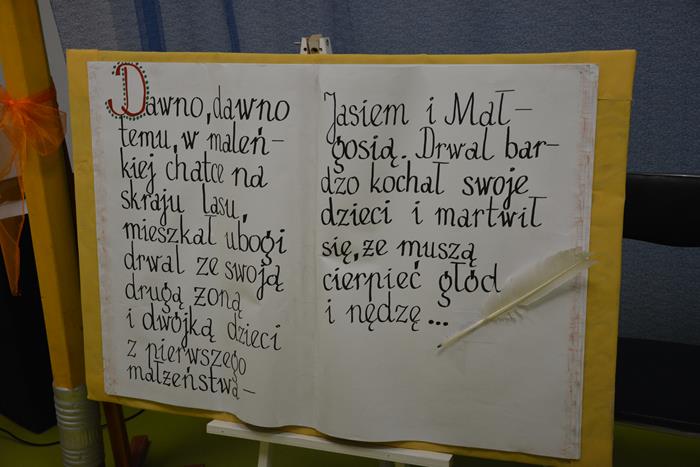 Dawno, dawno
temu, w maleń-
kiej chatce na
skraju lasu,
mieszkał ubogi
drwal ze swoją
drugą żoną
i dwójką dzieci
z pierwszego
małżeństwa-
Jasiem i Mał-
gosią. Drwal bar-
dzo kochał swoje
dzieci i martwił
się, że muszą
cierpieć głód
i nędzę...